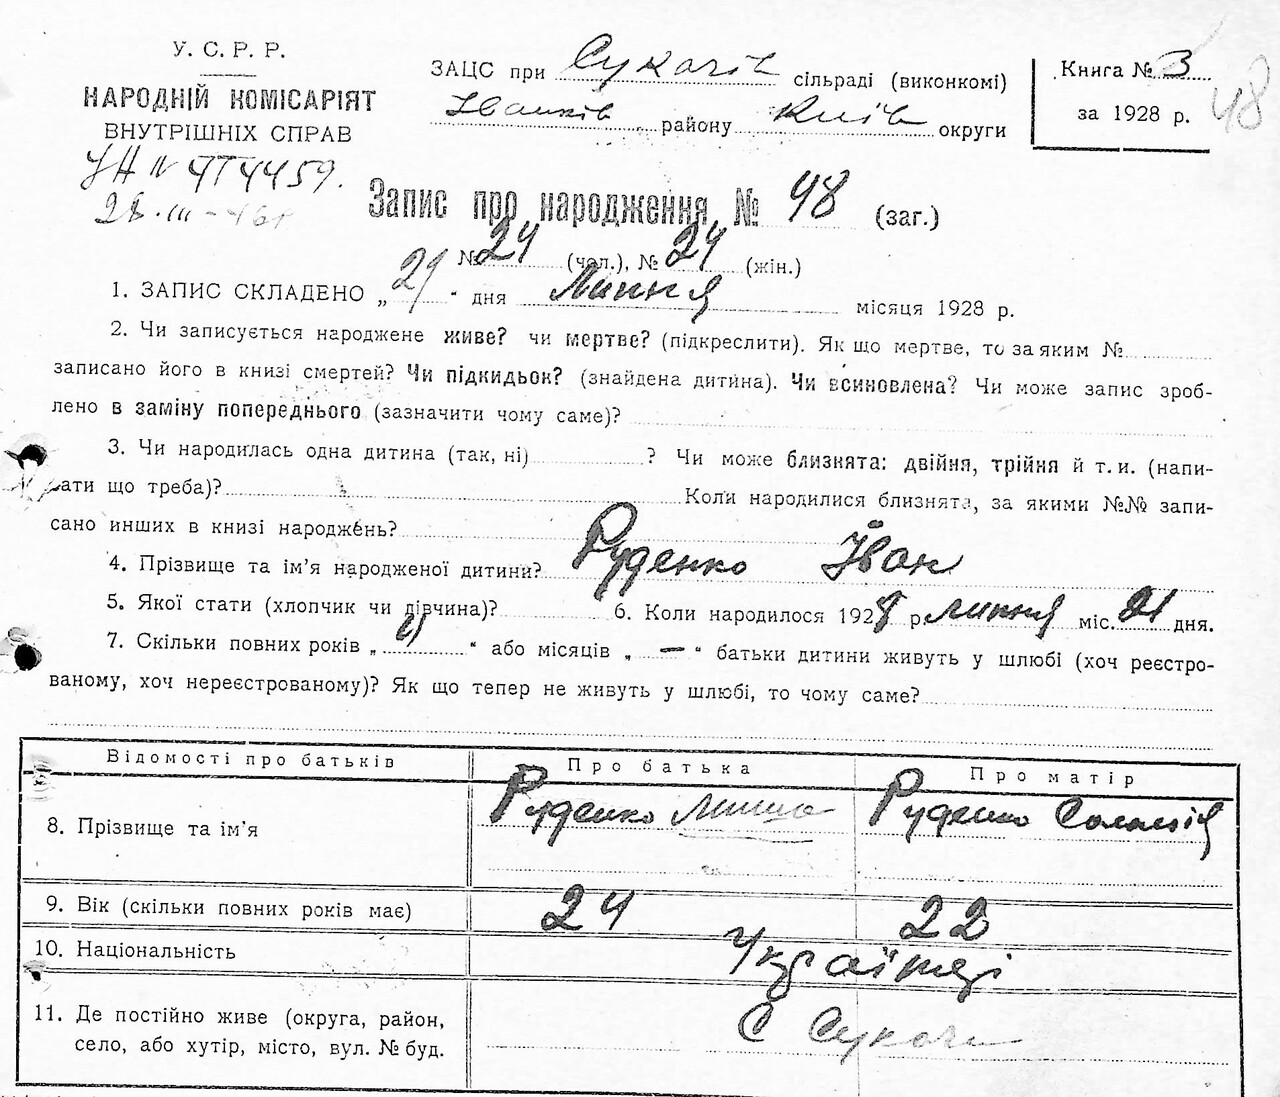 У. С. Р. Р.
НАРОДНІЙ КОМІСАРІЯТ
ВНУТРІШНІХ СПРАВ
ЗАЦС при Сукачів сільраді (виконкомі)
Іванків району Київ округи
Книга № 3
за 1928 р.
48
Запис про народження № 48 (заг.)
№ 24 (чол.), № 24 (жін.)
1. ЗАПИС СКЛАДЕНО „ 21 “ дня Липня місяця 1928 р.
2. Чи записується народжене живе? чи мертве? (підкреслити). Як що мертве, то за яким №
записано його в книзі смертей? Чи підкидьок? (знайдена дитина). Чи всиновлена? Чи може запис зроб-
лено в заміну попереднього (зазначити чому саме)?
3. Чи народилась одна дитина (так, ні) ? Чи може близнята: двійня, трійня й т. и. (напи-
сати що треба)? Коли народилися близнята, за якими №№ запи-
сано инших в книзі народжень?
4. Прізвище та ім’я народженої дитини? Руденко Іван
5. Якої стати (хлопчик чи дівчина)? 6. Коли народилося 1928 р. липня міс. 21 дня.
7. Скільки повних років „ “ або місяців „ — “ батьки дитини живуть у шлюбі (хоч реєстро-
ваному, хоч нереєстрованому)? Як що тепер не живуть у шлюбі, то чому саме?
Відомості про батьків Про батька Про матір
8. Прізвище та ім’я Руденко Миша Руденко Соломія
9. Вік (скільки повних років має) 24 22
10. Національність Українці
11. Де постійно живе (округа, район, с Сукачі
село, або хутір, місто, вул. № буд.